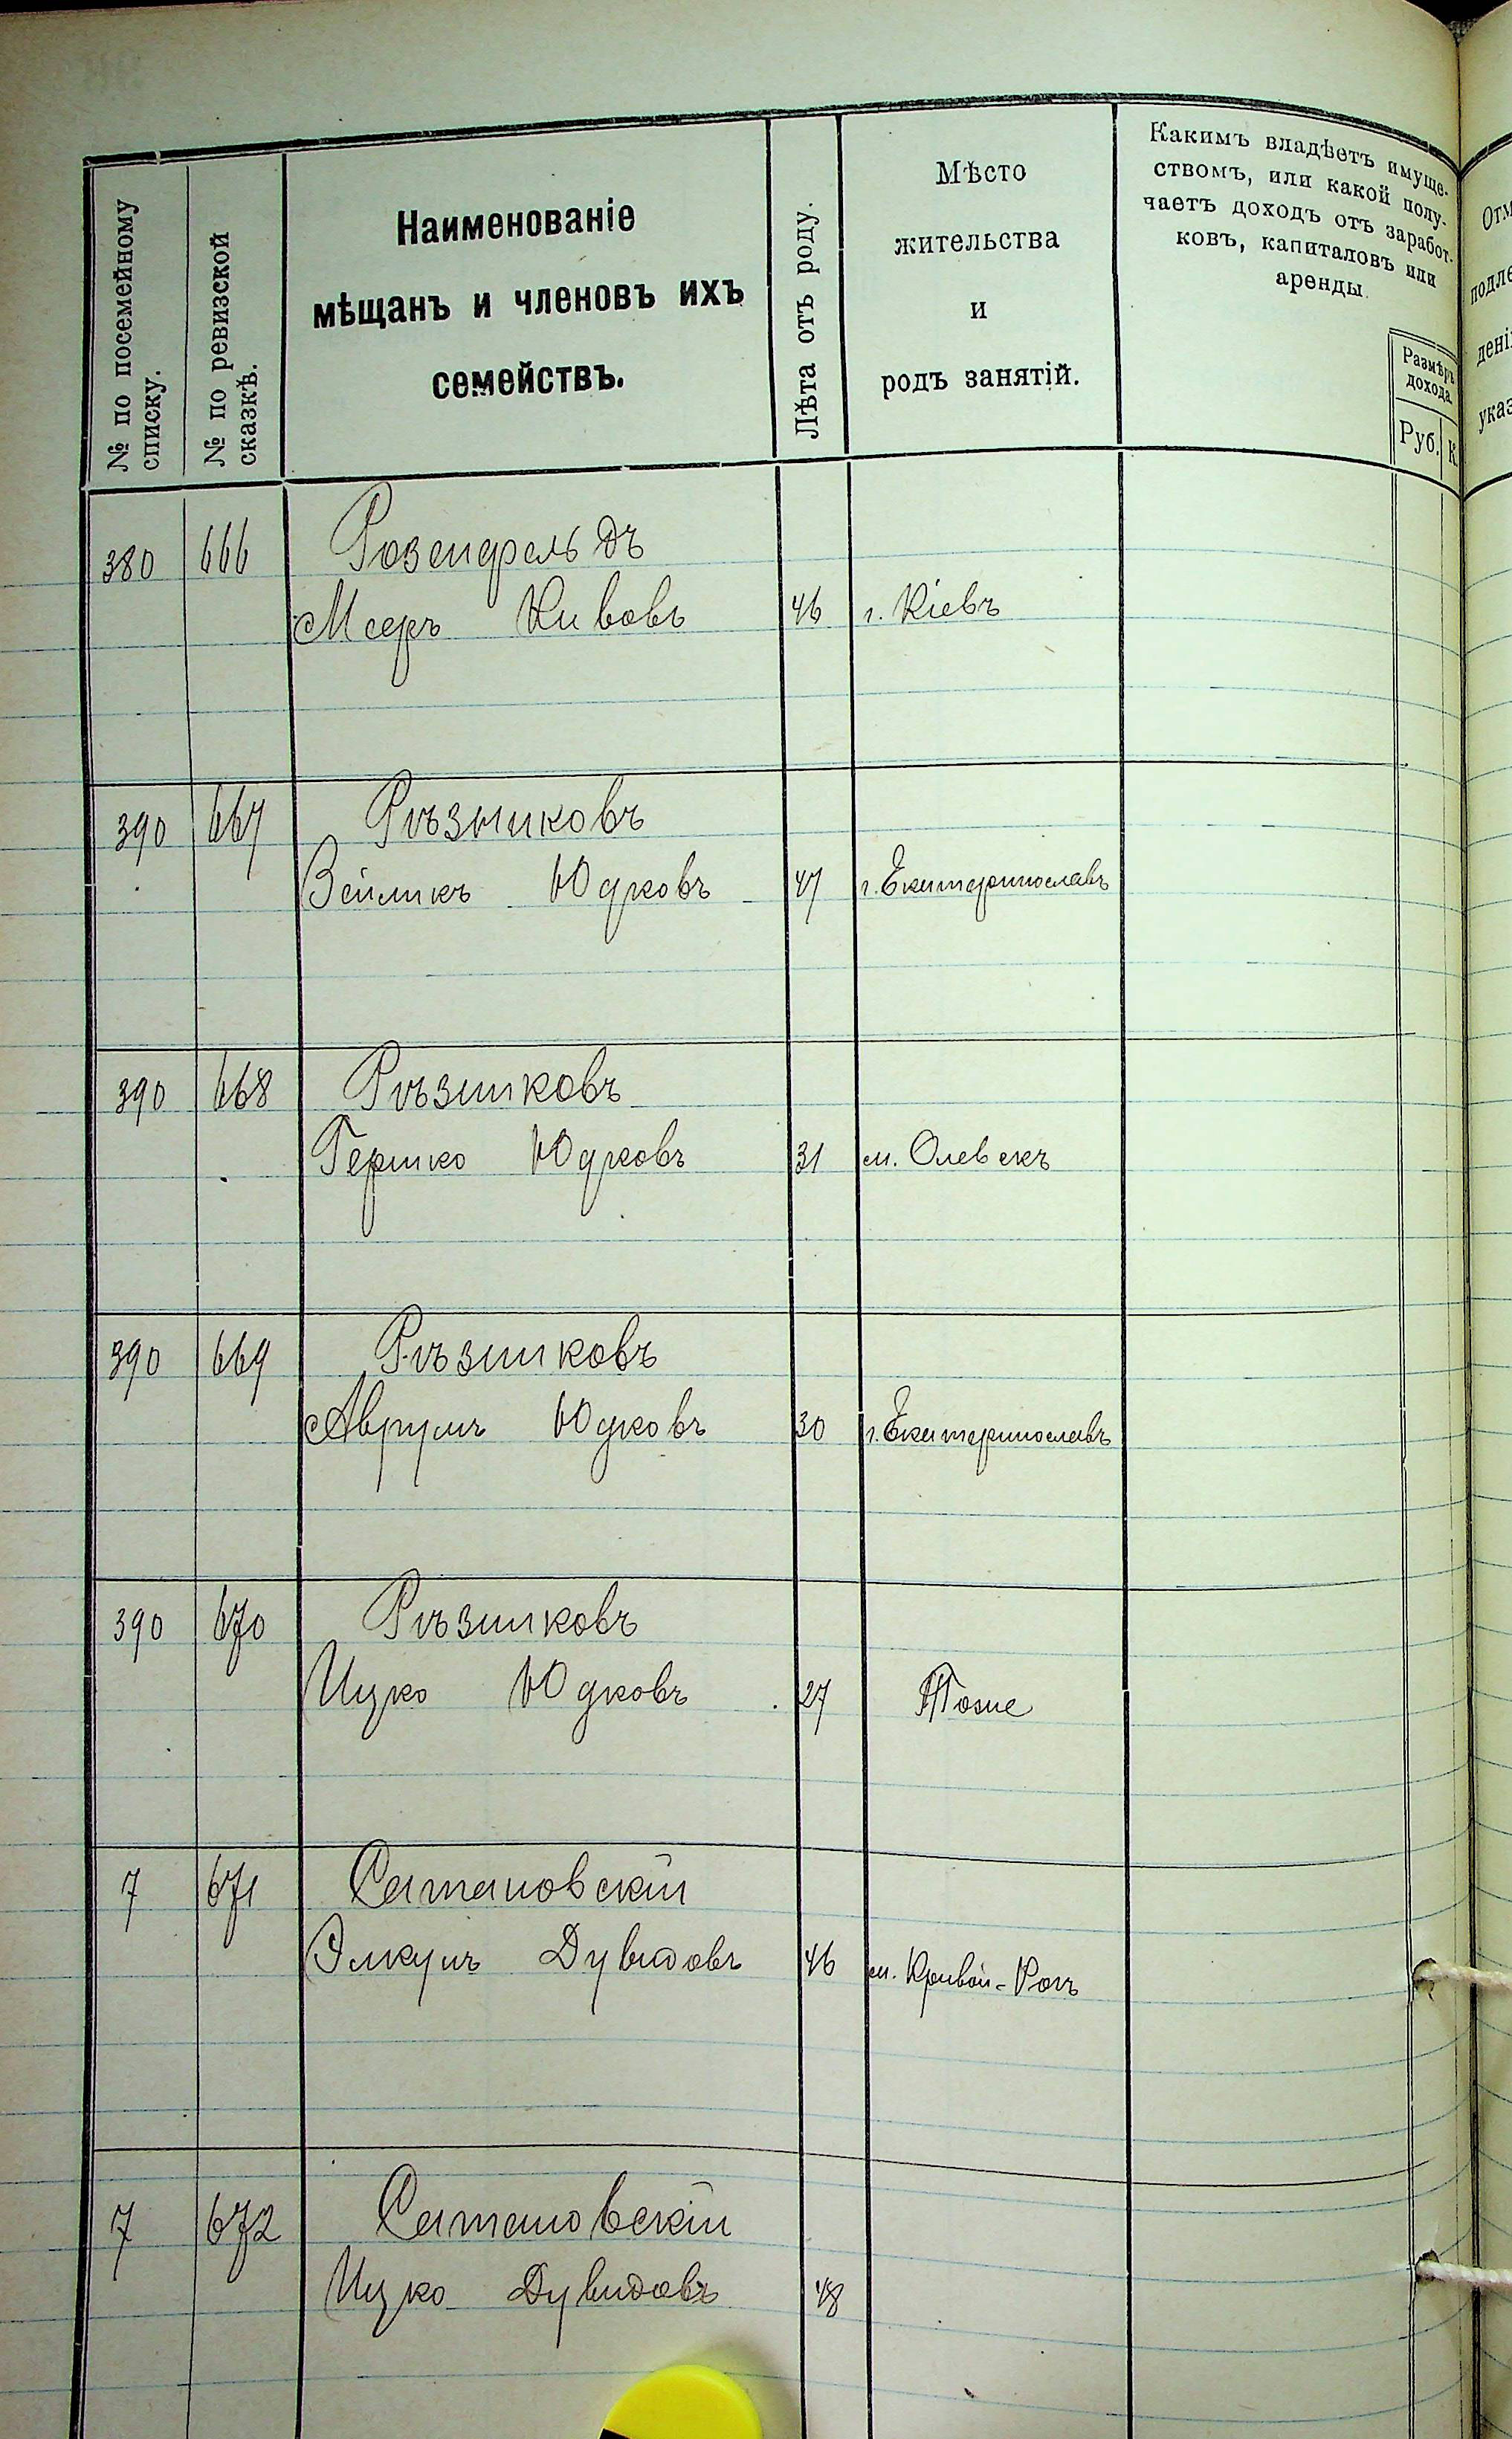 № по посемейному
списку.
№ по ревизской
сказкѣ.
Наименованіе
мѣщанъ и членовъ ихъ
семействъ.
Лѣта отъ роду.
Мѣсто
жительства
и
родъ занятій.
Какимъ владѣетъ имуще-
ствомъ, или какой полу-
чаетъ доходъ отъ заработ-
ковъ, капиталовъ или
аренды.
Размѣръ
дохода.
Руб. К.
380 666 Розенфельдъ
Мееръ 46 г. Кіевъ
390 667 Рѣзниковъ
Зейликъ Юдковъ 47 г. Екатеринославъ
390 668 Рѣзниковъ
Гершко Юдковъ 31 м. Олевскъ
390 669 Рѣзниковъ
Аврумъ Юдковъ 30 г. Екатеринославъ
390 670 Рѣзниковъ
Ицко Юдковъ 27 Тоже
7 671 Сатановскій
Элкунъ Дувидовъ 46 м. Кривой-Рогъ
7 672 Сатановскій
Ицко Дувидовъ 48